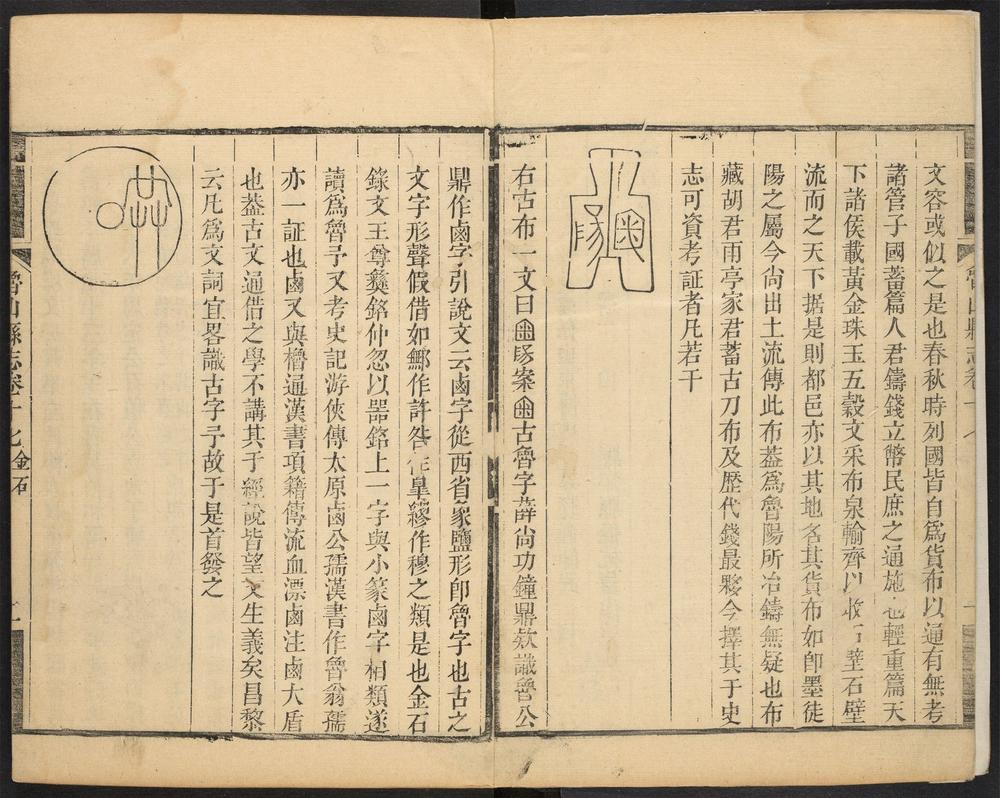 文容或似之是也春秋時列國皆自爲貨布以通有無考
諸管子國蓄篇人君鑄錢立幣民庶之通施也輕重篇天
下諸侯載黃金珠玉五穀文采布泉輸齊以收石壁石璧
流而之天下据是則都邑亦以其地名其貨布如卽墨徒
陽之屬今尙出土流傳此布葢爲魯陽所冶鑄無疑也布
藏胡君雨亭家君蓄古刀布及歷代錢最夥今擇其于史
志可資考証者凡若干
右古布一文曰案古魯字薛尙功鐘鼎欵識魯公
鼎作鹵字引說文云鹵字從西省象鹽形卽魯字也古之
文字形聲假借如鄦作許咎作臯繆作穆之類是也金石
錄文王尊彝銘仲忽以器銘上一字與小篆鹵字相類遂
讀爲魯字又考史記游俠傳太原鹵公孺漢書作魯翁孺
亦一証也鹵又與櫓通漢書項籍傳流血漂鹵注鹵大盾
也葢古文通借之學不講其于經說皆望文生義矣昌黎
云凡爲文詞宜畧識古字予故于是首發之
魯山縣志卷十七金石